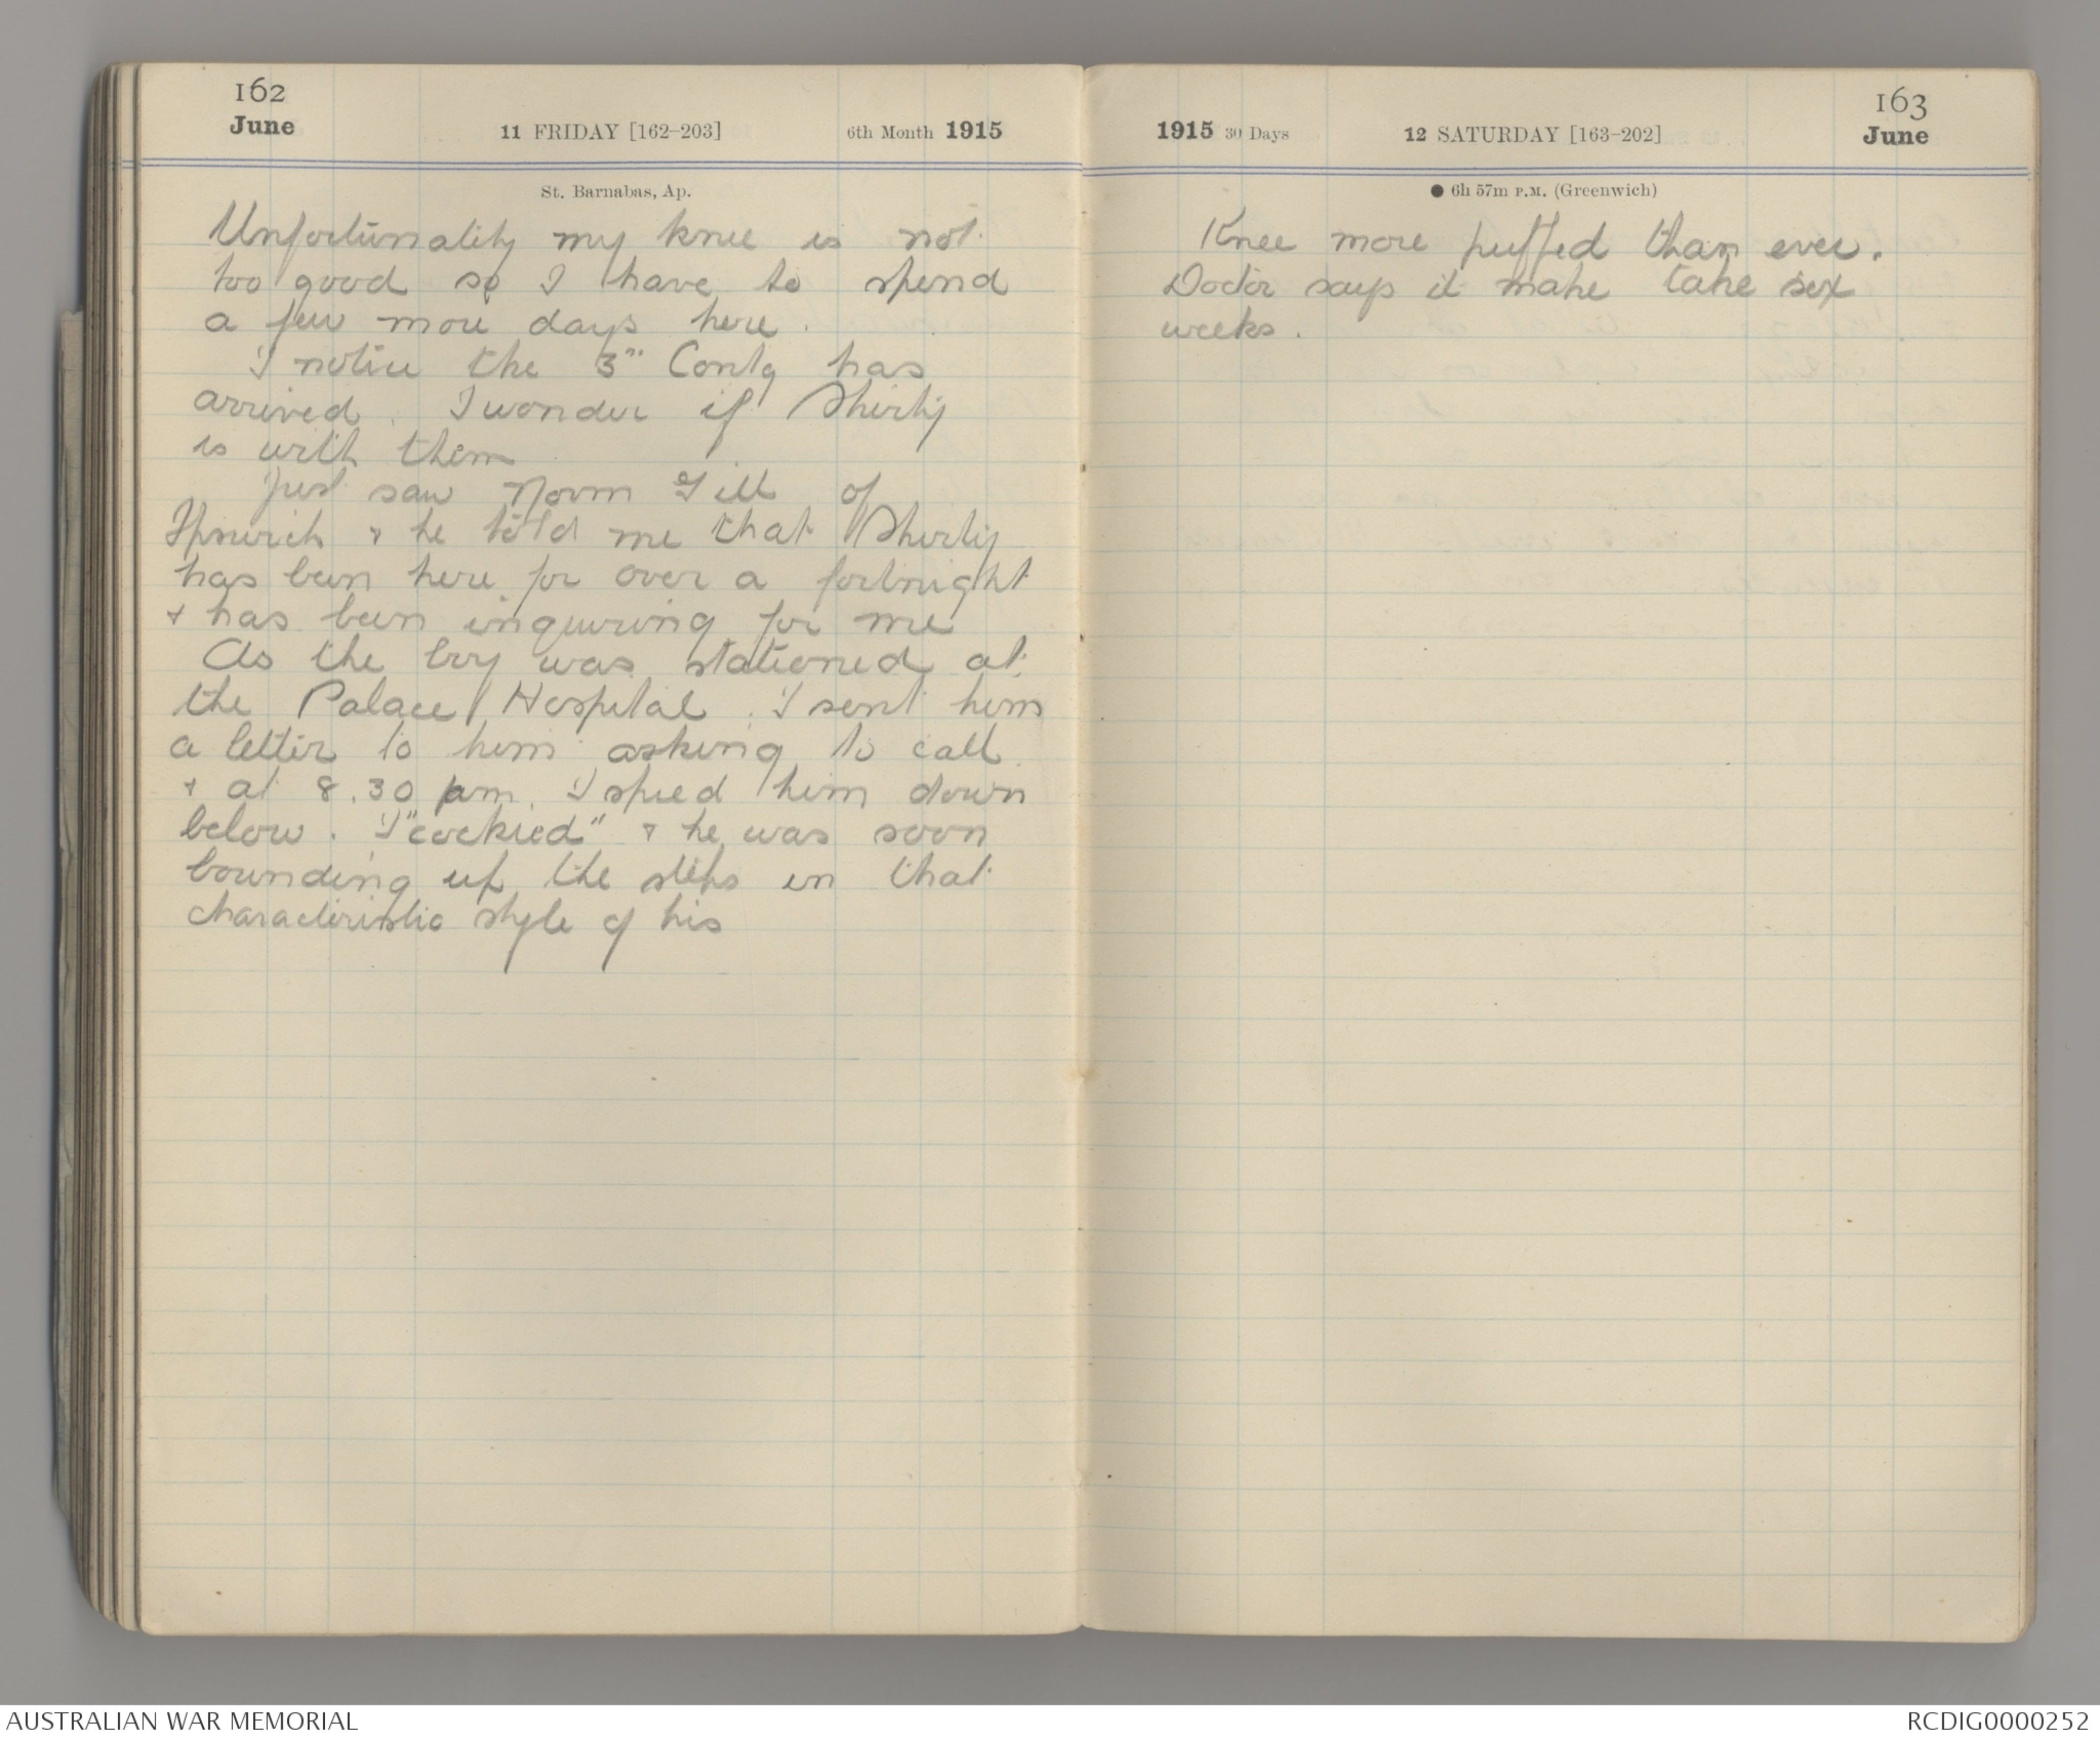 162
June
11 FRIDAY [162-203]
6th Month 1915
St. Barnabas, Ap.
Unfortunality my knee is not
too good so I have to spend
a few more days here.
I notice the 3" Contg has
arrived. I wonder if Shirly
is with them
Just saw Norm Gill of
Ipswich & he told me that Shirly
has been here for over a fortnight
& has been inquiring for me
As the boy was stationed at
the Palace Hospital. I sent him
a letter to him asking to call
& at 8.30 pm. I spied him down
below. I "cockied" & he was soon
bounding up the steps in that
characteristic style of his
163
June
1915 30 Days
12 SATURDAY [163-202]
● 6h 57m P.M. (Greenwich)
Knee more puffed than ever.
Doctor says it make take six
weeks.
AUSTRALIAN WAR MEMORIAL
RCDIG0000252